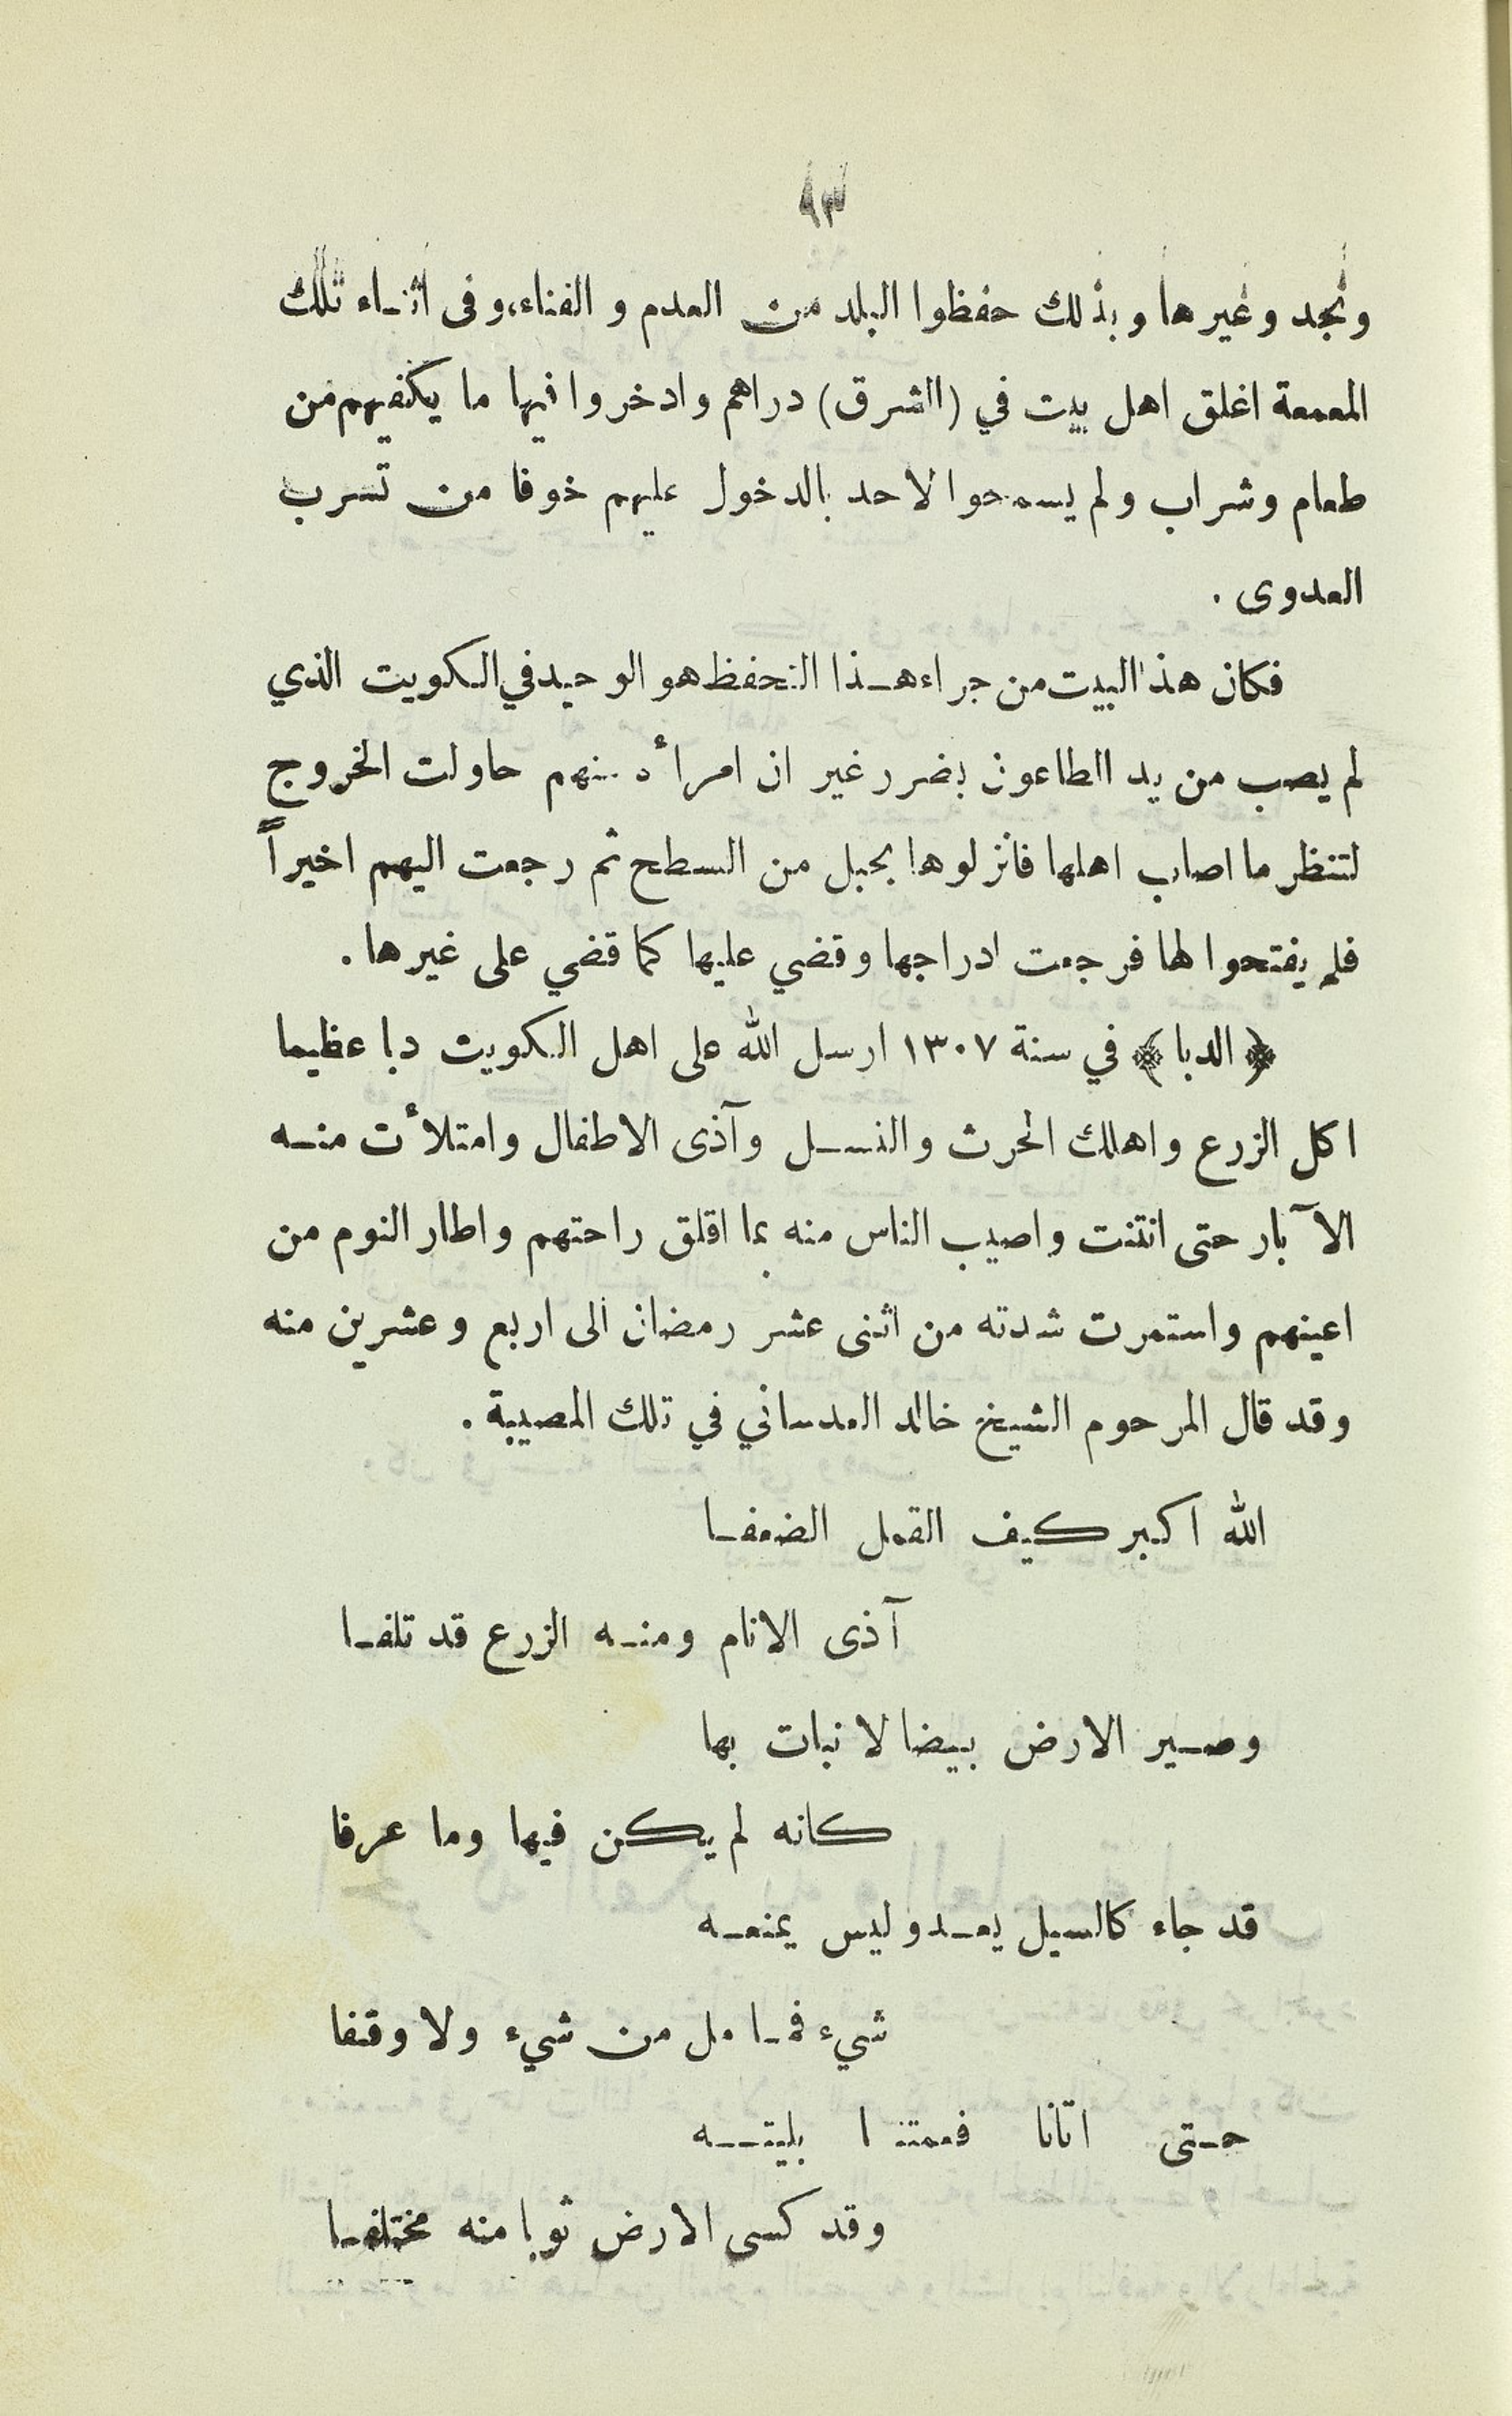 ٩٣
ونجد وغيرها وبذلك حفظوا البلد من العدم و الفناء، وفى اثناء تلك
المعمعة اغلق اهل بيت في (الشرق) دراهم وادخروا فيها ما يكفيهم من
طعام وشراب ولم يسمحوا لاحد بالدخول عليهم خوفا من تسرب
العدوى .
فكان هذا البيت من جراء هـذا التحفظ هو الوحيد في الكويت الذي
لم يصب من يد الطاعون بضرر غير ان امرأة منهم حاولت الخروج
لتنظر ما اصاب اهلها فانزلوها بحبل من السطح ثم رجعت اليهم اخيراً
فلم يفتحوا لها فرجعت ادراجها وقضي عليها كما قضي على غيرها .
﴿ الدبا ﴾ في سنة ١٣٠٧ ارسل الله على اهل الكويت دبا عظيما
اكل الزرع واهلك الحرث والنسـل وآذى الاطفال وامتلأت منـه
الآبار حتى انتنت واصيب الناس منه بما اقلق راحتهم واطار النوم من
اعينهم واستمرت شدته من اثنى عشر رمضان الى اربع وعشرين منه
وقد قال المرحوم الشيخ خالد العدساني في تلك المصيبة .
الله اكبر كيف القمل الضعفـا
آذى الانام ومنـه الزرع قد تلفـا
وصـير الارض بيضا لا نبات بها
كانه لم يكن فيها وما عرفا
قد جاء كالسيل يعـدو ليس يمنعـه
شيء فمـا مل من شيء ولا وقفا
حـتى اتانا فعمتنا بليتـه
وقد كسى الارض ثوبا منه مختلفـا